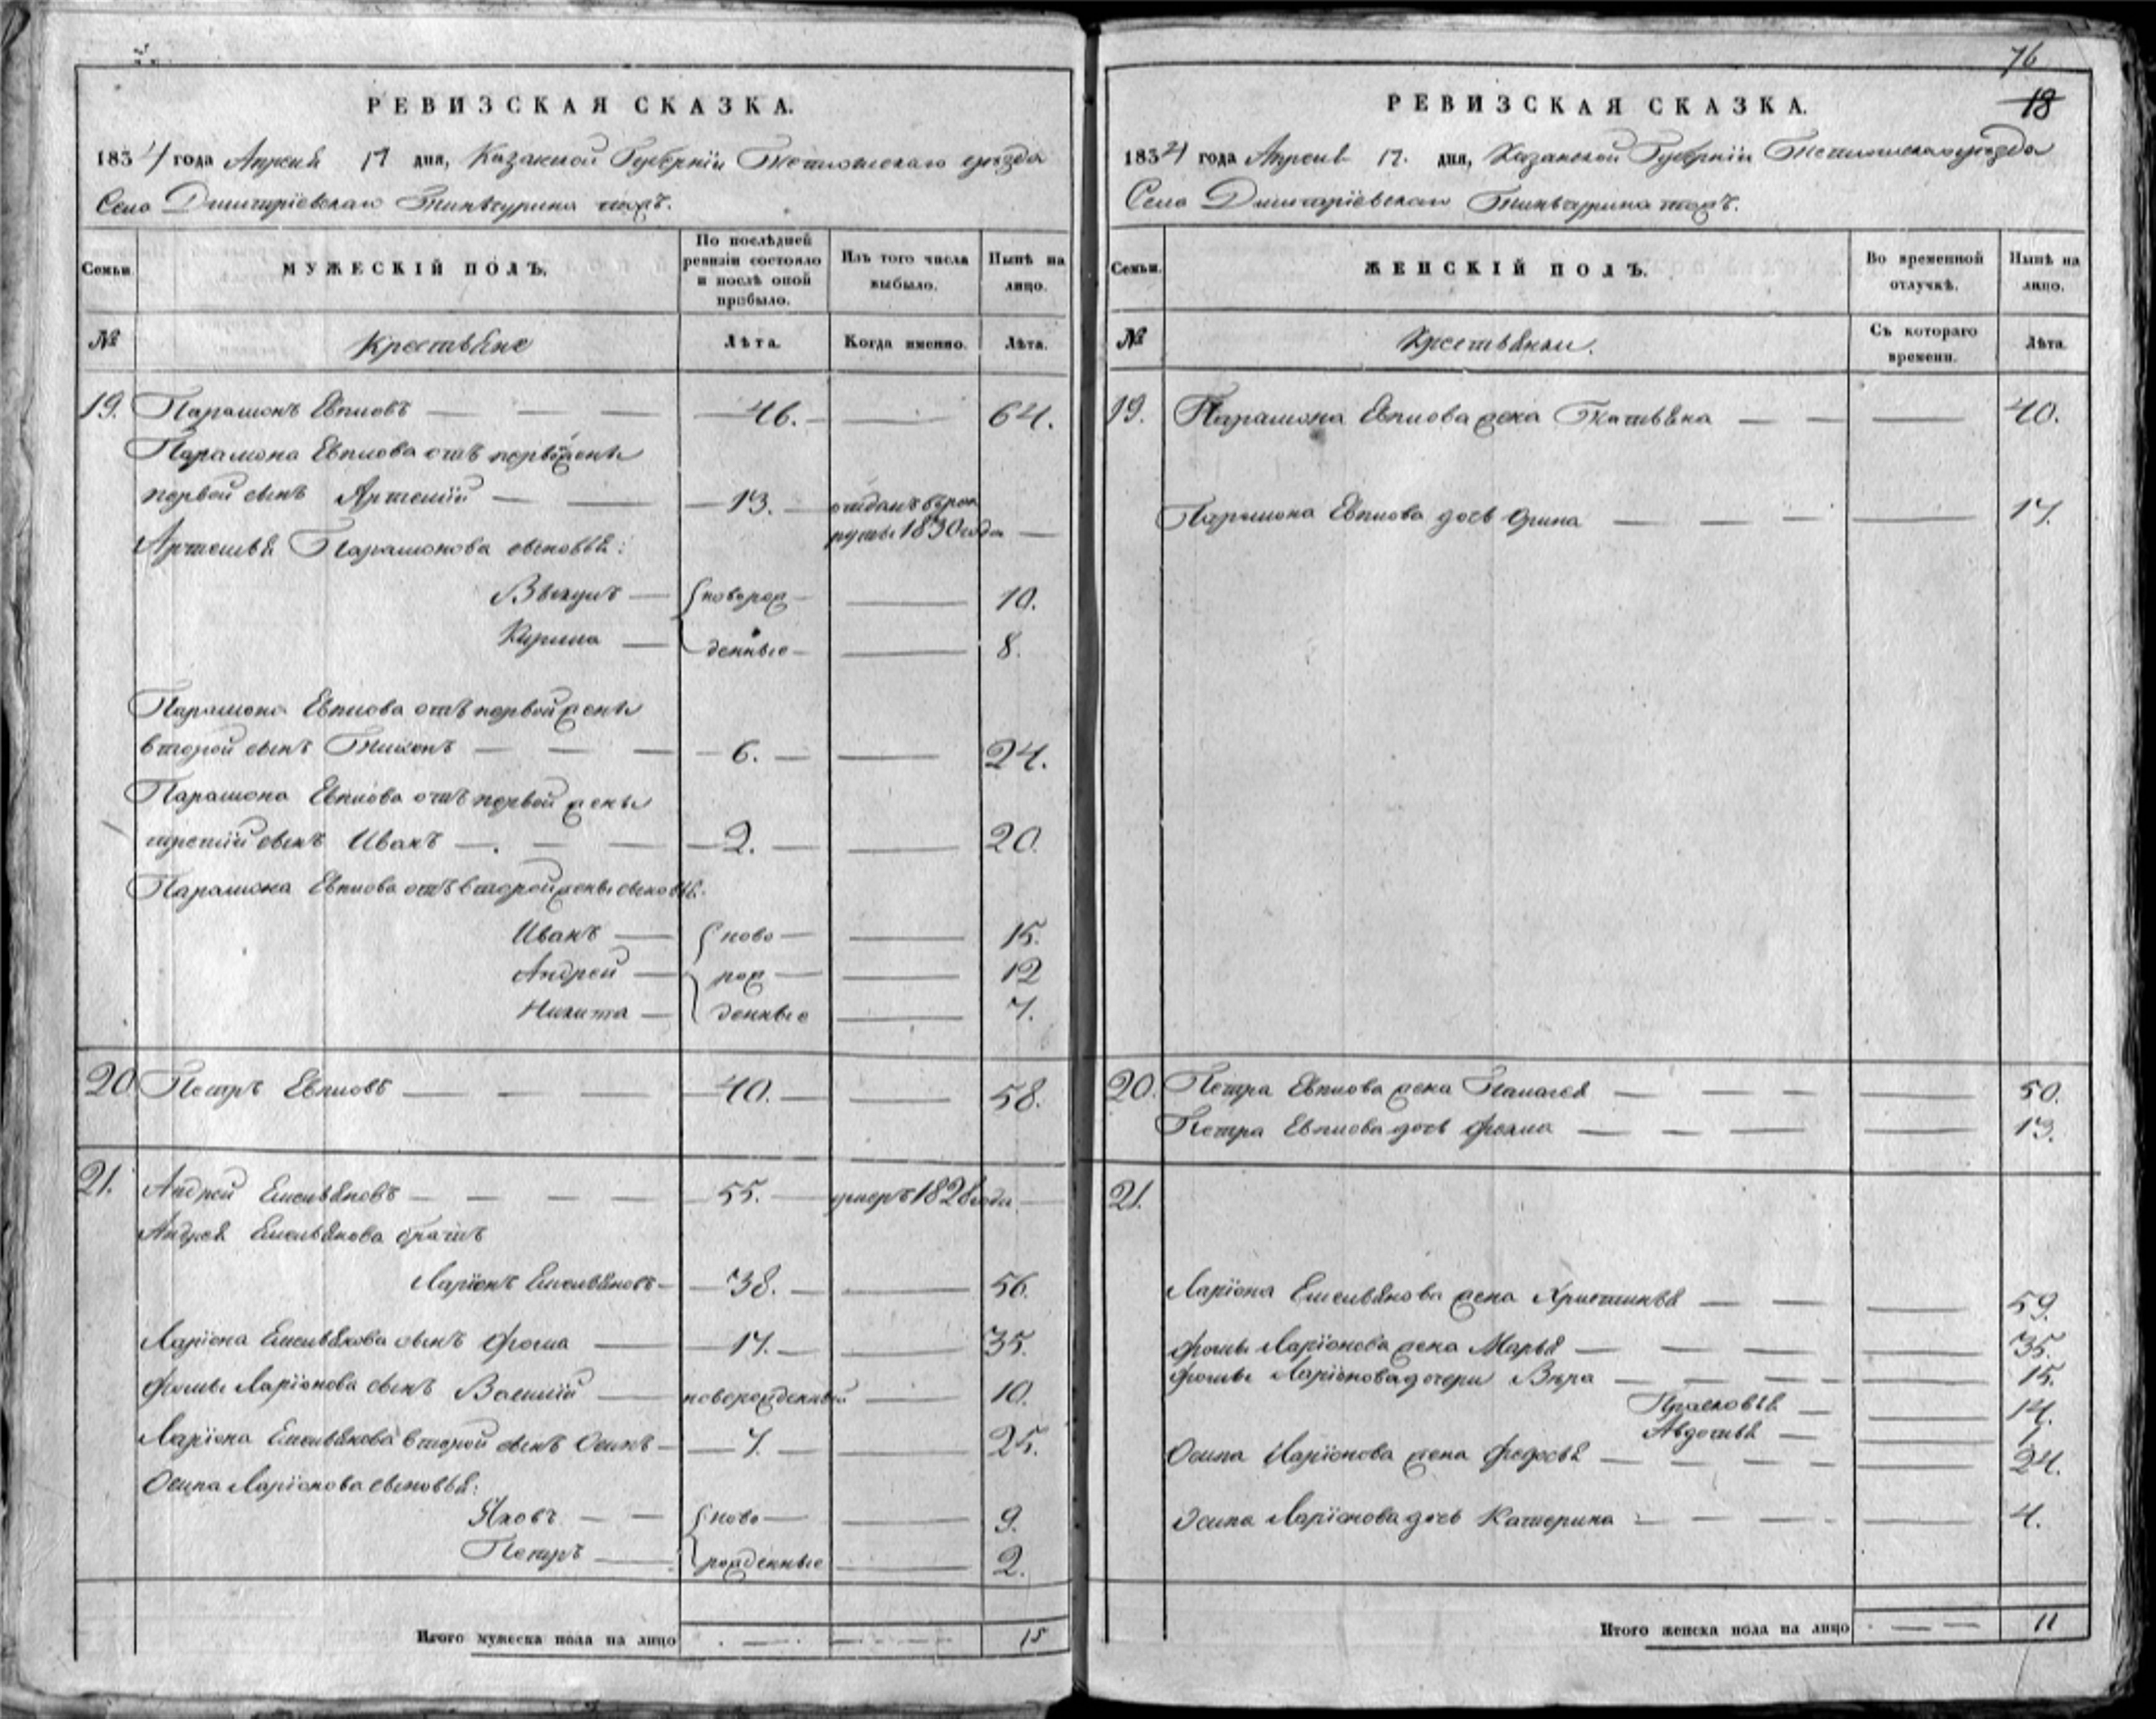 76
РЕВИЗСКАЯ СКАЗКА.
1834 года Апреля 17 дня, Казанской Губернiи Тетюшскаго уѣзда
Село Дмитрiевскаго тожъ.
Семьи. МУЖЕСКIЙ ПОЛЪ. По послѣдней ревизiи состояло и послѣ оной прибыло. Изъ того числа выбыло. Нынѣ на лицо.
№ Крестьяне Лѣта. Когда именно. Лѣта.
19. Парамонъ 46. 64.
Парамона отъ первой жены
первой сынъ Артемiй 13. отданъ въ рек
руты 1830 года
Артемья Парамонова сыновья:
новорож 10.
Кирила денные 8.
Парамона отъ первой жены
второй сынъ Тихонъ 6. 24.
Парамона отъ первой жены
третiй сынъ Иванъ 2. 20.
Парамона отъ второй жены сыновья:
Иванъ ново 15.
Андрей рож 12
Никита денные 7.
20 Петръ 40. 58.
21. Андрей Емельяновъ 55. умеръ 1828 года
Андрея Емельянова братъ
Ларiонъ Емельяновъ 38. 56.
Ларiона Емельянова сынъ Фома 17. 35.
Фомы Ларiонова сынъ Василiй новорожденный 10.
Ларiона Емельянова второй сынъ Осипъ 7. 25.
Осипа Ларiонова сыновья:
Яковъ ново 9.
Петръ рожденные 2.
Итого мужеска пола на лицо 15
РЕВИЗСКАЯ СКАЗКА. 18
1834 года Апреля 17. дня, Казанской Губернiи Тетюшскаго уѣзда
Село Дмитрiевскаго тожъ.
Семьи. ЖЕНСКIЙ ПОЛЪ. Во временной отлучкѣ. Нынѣ на лицо.
№ Крестьянки. Съ котораго времени. Лѣта.
19. Парамона жена Татьяна 40.
Парамона дочь Орина 17.
20. Петра жена Пелагея 50.
Петра дочь Фекла 13.
21.
Ларiона Емельянова жена Христинья 59.
Фомы Ларiонова жена Марья 35.
Фомы Ларiонова дочери Вѣра 15.
Прасковья 14.
Авдотья
Осипа Ларiонова жена Федосья 24.
Осипа Ларiонова дочь Катерина 4.
Итого женска пола на лицо 11